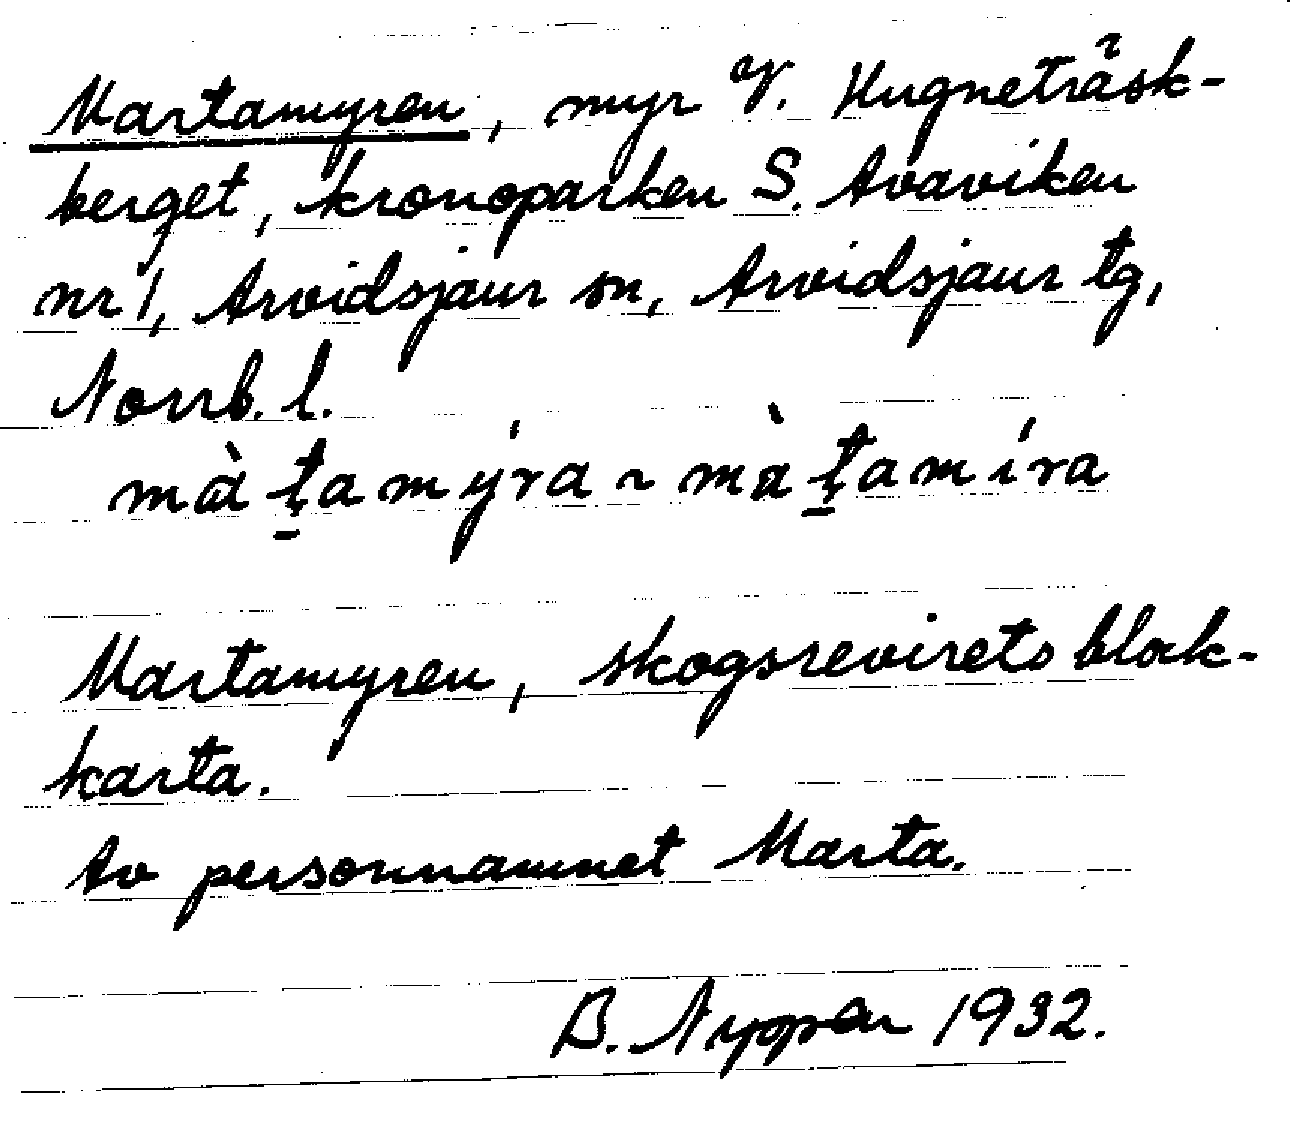 Martamyren, myr V. Hugneträsk-
berget, kronoparken S. Avaviken
nr 1, Arvidsjaur sn, Arvidsjaur tg,
Norrb. l.
mà ṯamýra ~ mà̱ṯamíra
Martamyren, skogsrevirets block-
karta.
Av personnamnet Marta.
B. Nyman 1932.